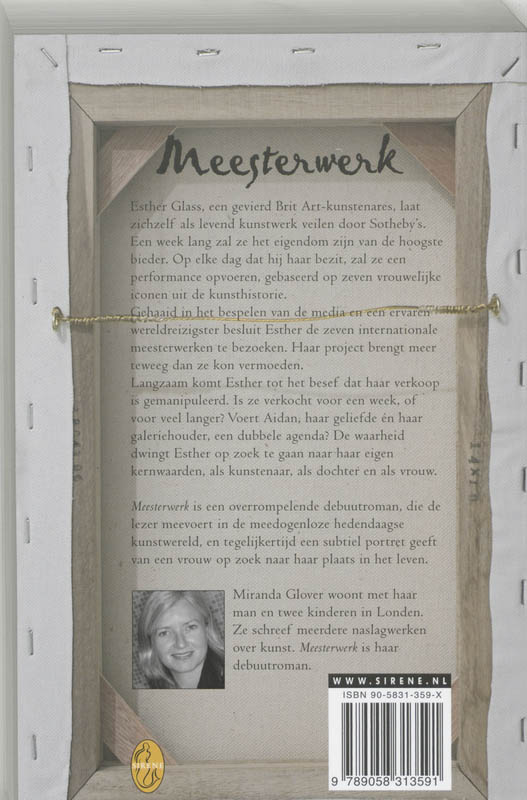 Meesterwerk
Esther Glass, een gevierd Brit Art-kunstenares, laat
zichzelf als levend kunstwerk veilen door Sotheby's.
Een week lang zal ze het eigendom zijn van de hoogste
bieder. Op elke dag dat hij haar bezit, zal ze een
performance opvoeren, gebaseerd op zeven vrouwelijke
iconen uit de kunsthistorie.
Gehaaid in het bespelen van de media en een ervaren
wereldreizigster besluit Esther de zeven internationale
meesterwerken te bezoeken. Haar project brengt meer
teweeg dan ze kon vermoeden.
Langzaam komt Esther tot het besef dat haar verkoop
is gemanipuleerd. Is ze verkocht voor een week, of
voor veel langer? Voert Aidan, haar geliefde én haar
galeriehouder, een dubbele agenda? De waarheid
dwingt Esther op zoek te gaan naar haar eigen
kernwaarden, als kunstenaar, als dochter en als vrouw.
Meesterwerk is een overrompelende debuutroman, die de
lezer meevoert in de meedogenloze hedendaagse
kunstwereld, en tegelijkertijd een subtiel portret geeft
van een vrouw op zoek naar haar plaats in het leven.
Miranda Glover woont met haar
man en twee kinderen in Londen.
Ze schreef meerdere naslagwerken
over kunst. Meesterwerk is haar
debuutroman.
WWW.SIRENE.NL
ISBN 90-5831-359-X
9 789058 313591
SIRENE